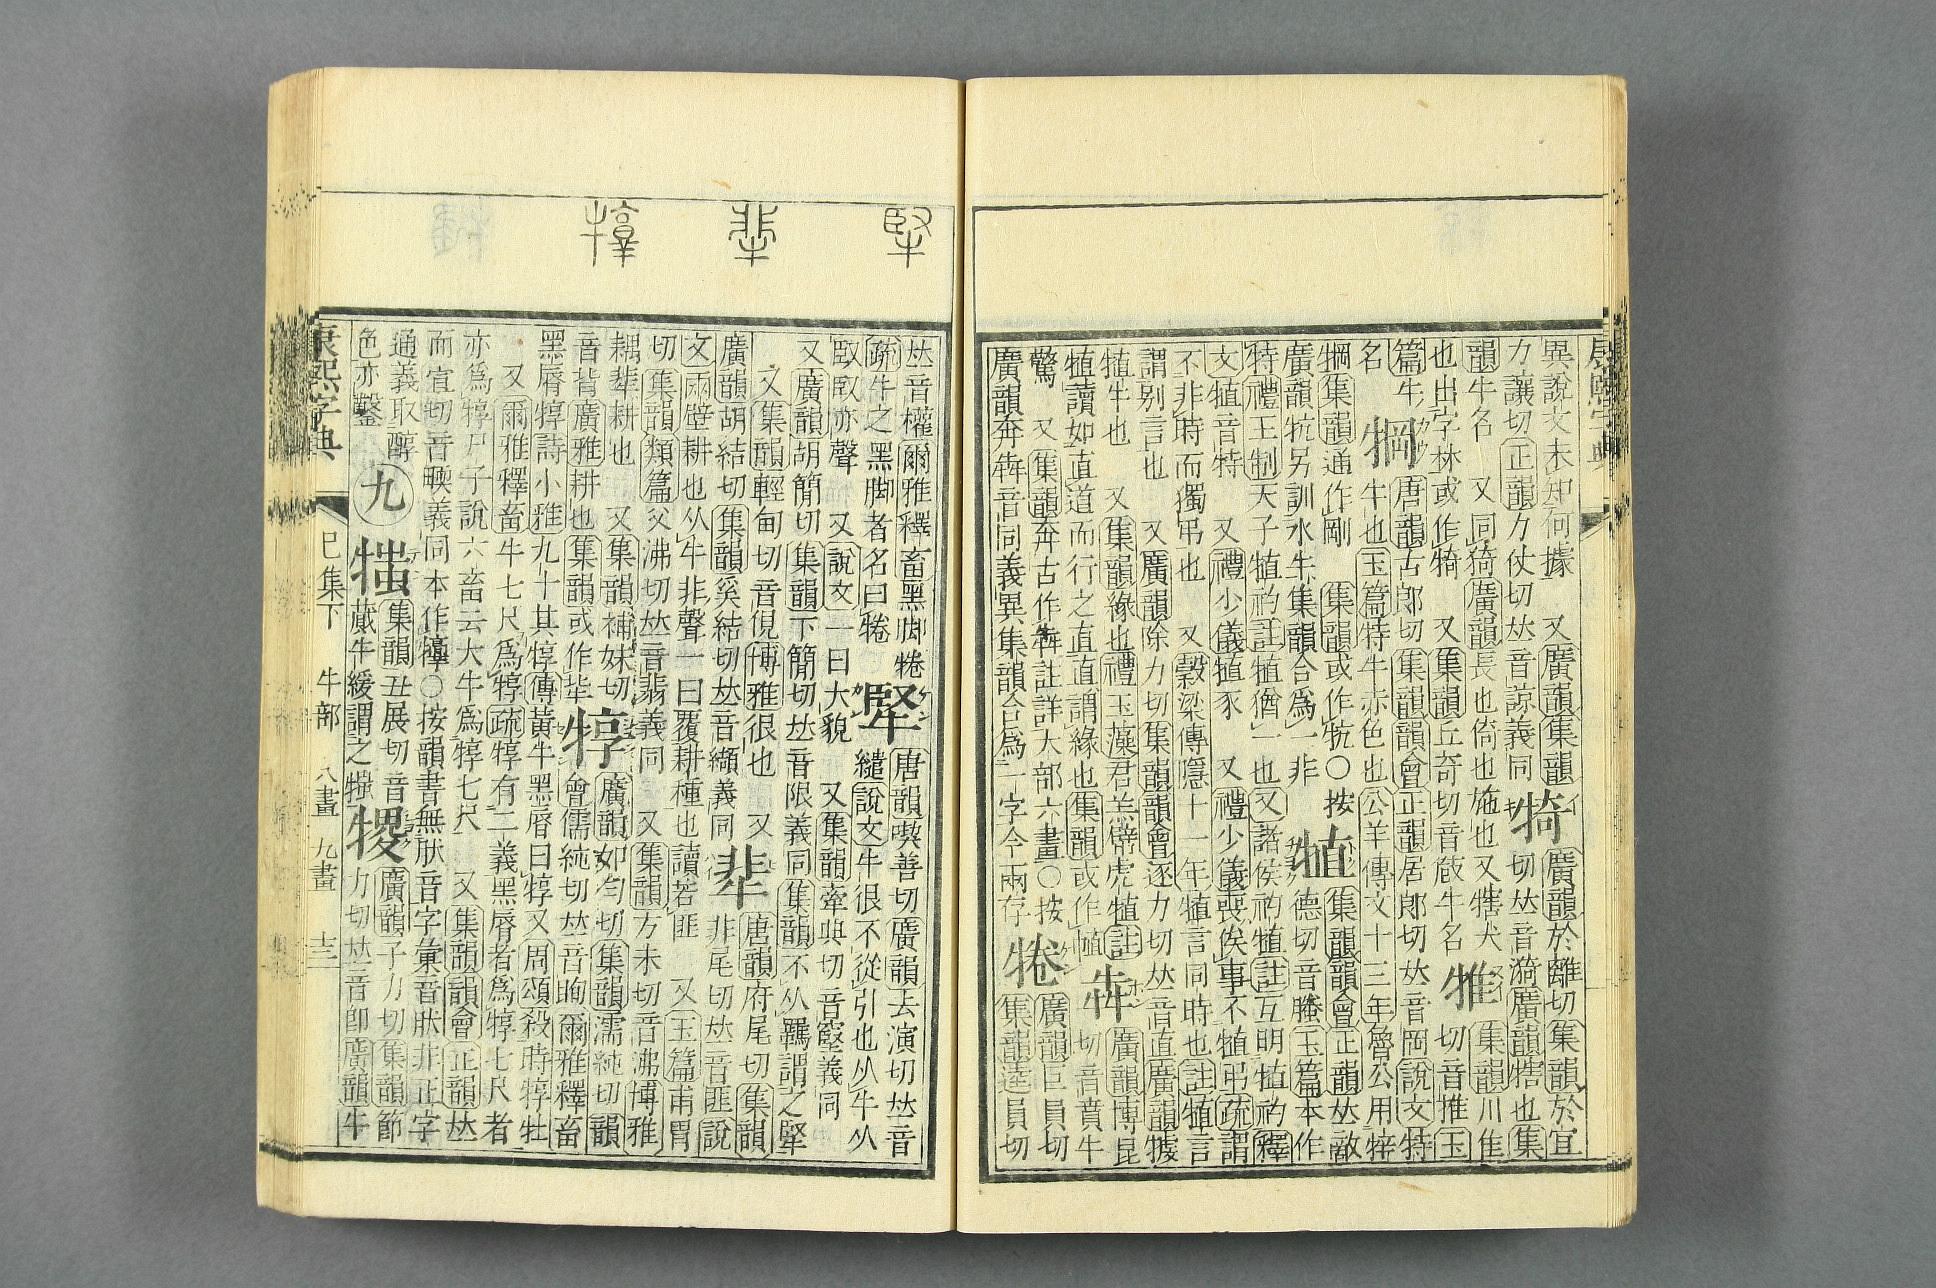 異說文未知何據　又廣韻集韻
犄
廣韻於離切集韻於宜
力讓切正韻力仗切𠀤音諒義同
切𠀤音漪廣韻犗也集
韻牛名　又同犄廣韻長也倚也施也又犗犬
𤙯
集韻川隹
也出字林或作犄　又集韻丘奇切音㩻牛名
切音推玉
篇牛名
犅
唐韻古郎切集韻韻會正韻居郎切𠀤音岡說文特
牛也玉篇特牛赤色也公羊傳文十三年魯公用騂
犅集韻通作剛　集韻或作牨○按
廣韻牨另訓水牛集韻合爲一非
犆
集韻韻會正韻𠀤敵
德切音騰玉篇本作
特禮王制天子犆礿註犆猶一也又諸侯礿犆註互明犆礿釋
文犆音特　又禮少儀犆豕　又禮少儀喪俟事不犆弔疏謂
不非時而獨弔也　又穀梁傳隱十一年犆言同時也註犆言
謂别言也　又廣韻除力切集韻韻會逐力切𠀤音直廣韻㹿
犆牛也　又集韻緣也禮玉藻君羔幦虎犆註
犆讀如直道而行之直直謂緣也集韻或作㥀
犇
廣韻博昆
切音賁牛
驚　又集韻奔古作犇註詳大部六畫○按
廣韻奔犇音同義異集韻合爲一字今兩存
犈
廣韻巨員切
集韻逵員切
𠀤音權爾雅釋畜黑脚犈
疏牛之黑脚者名曰犈
㹂
唐韻喫善切廣韻去演切𠀤音
繾說文牛很不從引也从牛从
臤臤亦聲　又說文一曰大貌　又集韻牽典切音窒義同
又廣韻胡簡切集韻下簡切𠀤音限義同集韻不从羈謂之㹂
又集韻輕甸切音俔博雅很也　又
廣韻胡結切集韻奚結切𠀤音纈義同
𤙴
唐韻府尾切集韻
非尾切𠀤音匪說
文兩壁耕也从牛非聲一曰覆耕種也讀若匪　又玉篇甫胃
切集韻類篇父沸切𠀤音翡義同　又集韻方未切音沸博雅
耦𤙴耕也　又集韻補妹切
音背廣雅耕也集韻或作㹃
犉
廣韻如勻切集韻濡純切韻
會儒純切𠀤音䀏爾雅釋畜
黑脣犉詩小雅九十其犉傳黃牛黑脣曰犉又周頌殺時犉牡
又爾雅釋畜牛七尺爲犉疏犉有二義黑脣者爲犉七尺者
亦爲犉尸子說六畜云大牛爲犉七尺　又集韻韻會正韻𠀤
而宣切音㼱義同本作犉○按韻書無肰音字彙音肰非正字
通義取醇
色亦鑿
九
㹐
集韻丑展切音
蕆牛緩謂之㹐
㮨
廣韻子力切集韻節
力切𠀤音卽廣韻牛
康熙字典
巳集下　牛部　八畫　九畫　十三